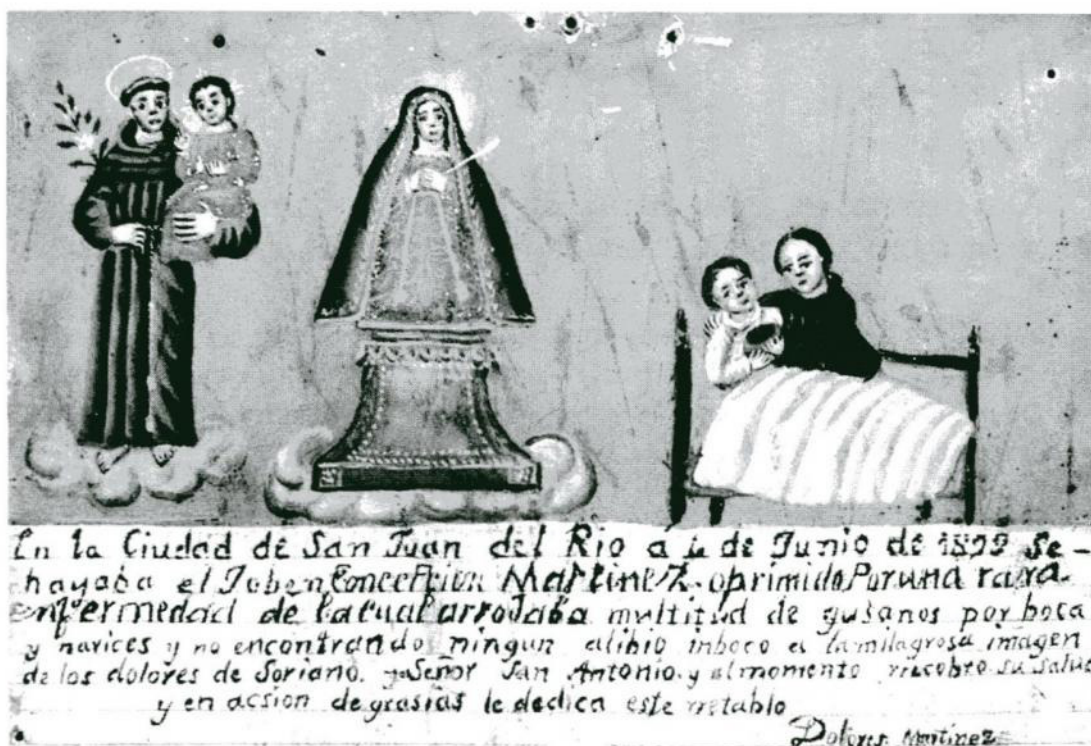 En la Ciudad de San Juan del Rio á 4 de Junio de 1899 se-
hayaba el Joben Concepcion Martinez. oprimido Por una rara
enfermedad de la cual arrojaba multitud de gusanos por boca
y narices y no encontrando ningun alibio inboco a la milagrosa imagen
de los dolores de Soriano. y Señor San Antonio. y al momento recobro su salud
y en acsion de grasias le dedica este retablo
Dolores Martinez